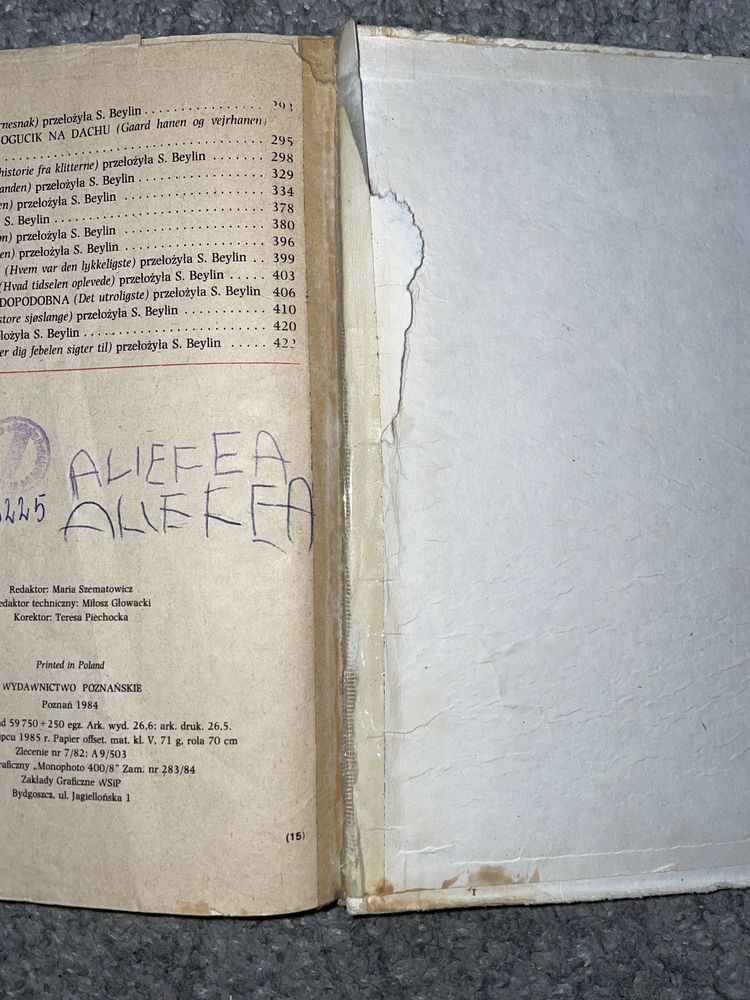 rnesnak) przełożyła S. Beylin . . . . . . . . . . . . . . . . 293
OGUCIK NA DACHU (Gaard hanen og vejrhanen)
. . . . . . . . . . . . . . . . . . . . . . . . . . . . . . . . 295
historie fra klitterne) przełożyła S. Beylin . . . . . . . 298
anden) przełożyła S. Beylin . . . . . . . . . . . . . . . . 329
en) przełożyła S. Beylin . . . . . . . . . . . . . . . . . . 334
S. Beylin . . . . . . . . . . . . . . . . . . . . . . . . . . 378
on) przełożyła S. Beylin . . . . . . . . . . . . . . . . . . 380
en) przełożyła S. Beylin . . . . . . . . . . . . . . . . . . 396
(Hvem var den lykkeligste) przełożyła S. Beylin . . 399
(Hvad tidselen oplevede) przełożyła S. Beylin . . . . . 403
DOPODOBNA (Det utroligste) przełożyła S. Beylin 406
store sjøslange) przełożyła S. Beylin . . . . . . . . . . 410
łożyła S. Beylin . . . . . . . . . . . . . . . . . . . . . . 420
er dig febelen sigter til) przełożyła S. Beylin . . . . . 422
ALIEFEA
225 ALIEFEA
Redaktor: Maria Szematowicz
edaktor techniczny: Miłosz Głowacki
Korektor: Teresa Piechocka
Printed in Poland
WYDAWNICTWO POZNAŃSKIE
Poznań 1984
d 59 750 + 250 egz. Ark. wyd. 26,6; ark. druk. 26,5.
ipcu 1985 r. Papier offset. mat. kl. V, 71 g, rola 70 cm
Zlecenie nr 7/82; A9/503
raficzny „Monophoto 400/8" Zam. nr 283/84
Zakłady Graficzne WSiP
Bydgoszcz, ul. Jagiellońska 1
(15)